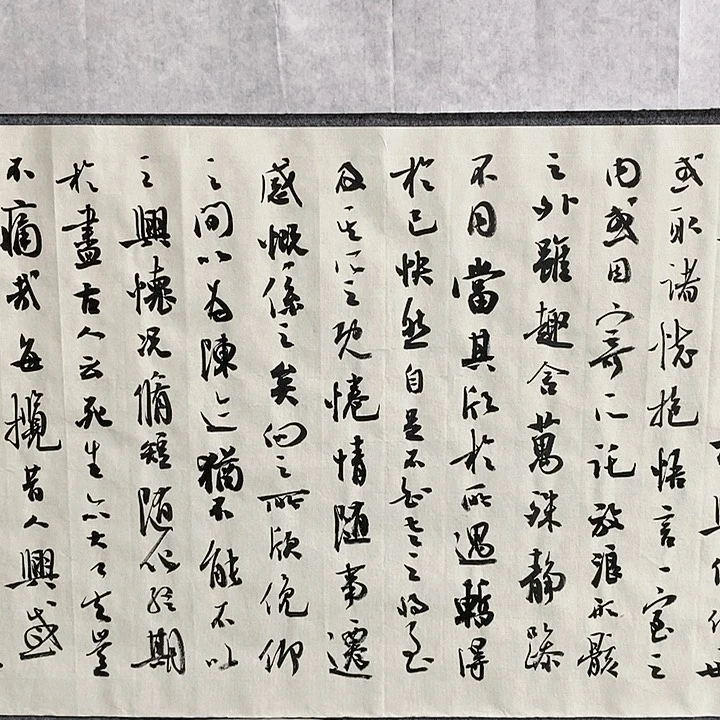 或取諸懷抱悟言一室之
內或因寄所託放浪形骸
之外雖趣舍萬殊靜躁
不同當其欣於所遇暫得
於己快然自足不知老之將至
及其所之既惓情隨事遷
感慨係之矣向之所欣俛仰
之間以為陳迹猶不能不以
之興懷況脩短隨化終期
於盡古人云死生亦大矣豈
不痛哉每攬昔人興感